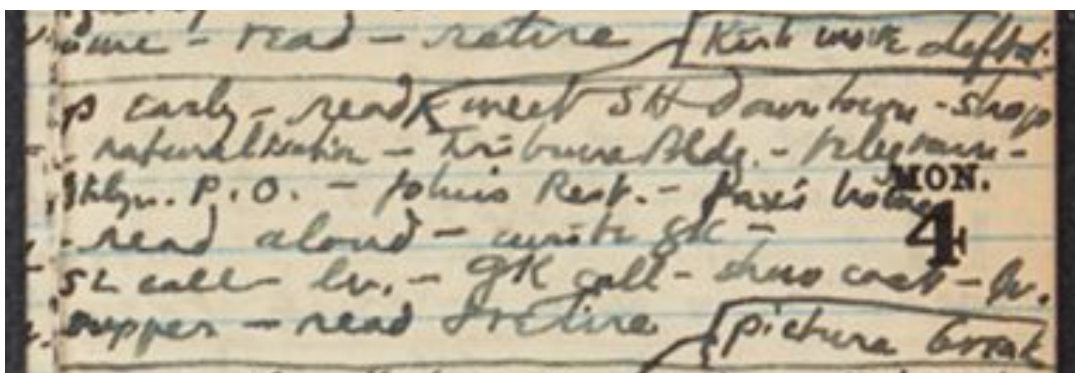 read – retire
Kirk move
early – read meet SH downtown – shop
naturalisation – Tribune Bldg. – telegram –
P.O. – John's Rest. – home MON.
– read aloud – write GK – 4
SL call – lv. – GK call – show coat – lv.
supper – read & retire picture